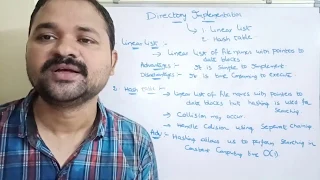 Directory Implementation
1. Linear List
2. Hash Table
1. Linear List :-
- Linear list of file names with pointers to
data blocks
Advantages :- It is simple to Implement
Disadvantages :- It is time consuming to execute
2. Hash Table :-
- Linear list of file names with pointers to
data blocks but hashing is used for
Searching.
- Collision may occur
- Handle Collision using Separate Chaining
Adv :- Hashing allows us to perform searching in
Constant Computing time O(1)